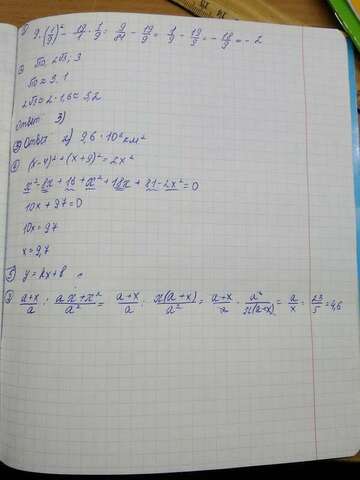 1) 9·(1/9)² − 19/1 · 1/9 = 9/81 − 19/9 = 1/9 − 19/9 = −18/9 = −2
√10 ≈ 3,1
Ответ 3)
3) Ответ 2) 9,6 · 10⁶ км²
(x−4)²+(x+9)²=2x²
x²−8x+16+x²+18x+81−2x²=0
10x+97=0
10x=97
x=9,7
5) y=kx+b
a+x/a : ax+x²/a² = a+x/a : x(a+x)/a² = a+x/a · a²/x(a+x) = a/x = 23/5 = 4,6